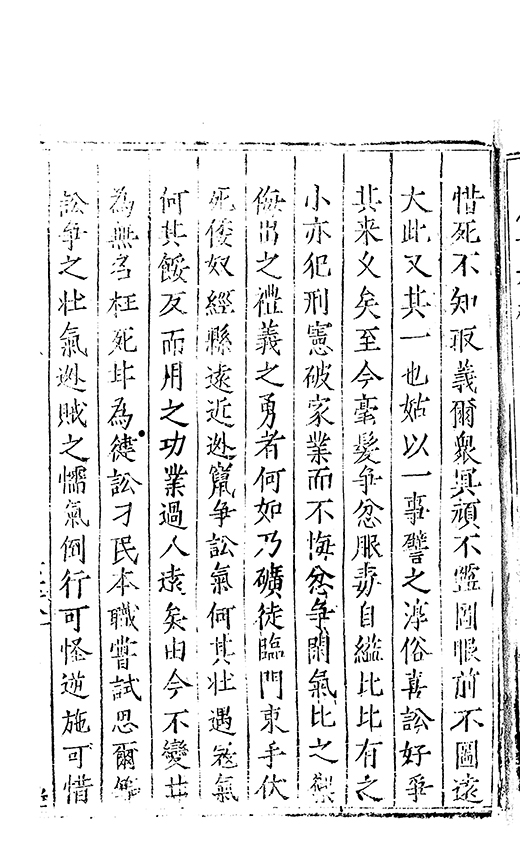 惜死不知取義爾衆冥頑不盬圖眼前不圖遠
大此又其一也姑以一事譬之淳俗喜訟好爭
其来乆矣至今毫髮争忿服毒自縊比比有之
小亦犯刑憲破家業而不悔忿争閗氣比之禦
侮出之禮義之勇者何如乃礦徒臨門束手伏
死倭奴經縣遠近迯竄争訟氣何其壮遇冦氣
何其餒反而用之功業過人遠矣由今不變甘
為無名枉死非為健訟刁民本職嘗試思爾
訟争之壮氣迯賊之懦氣倒行可怪逆施可惜